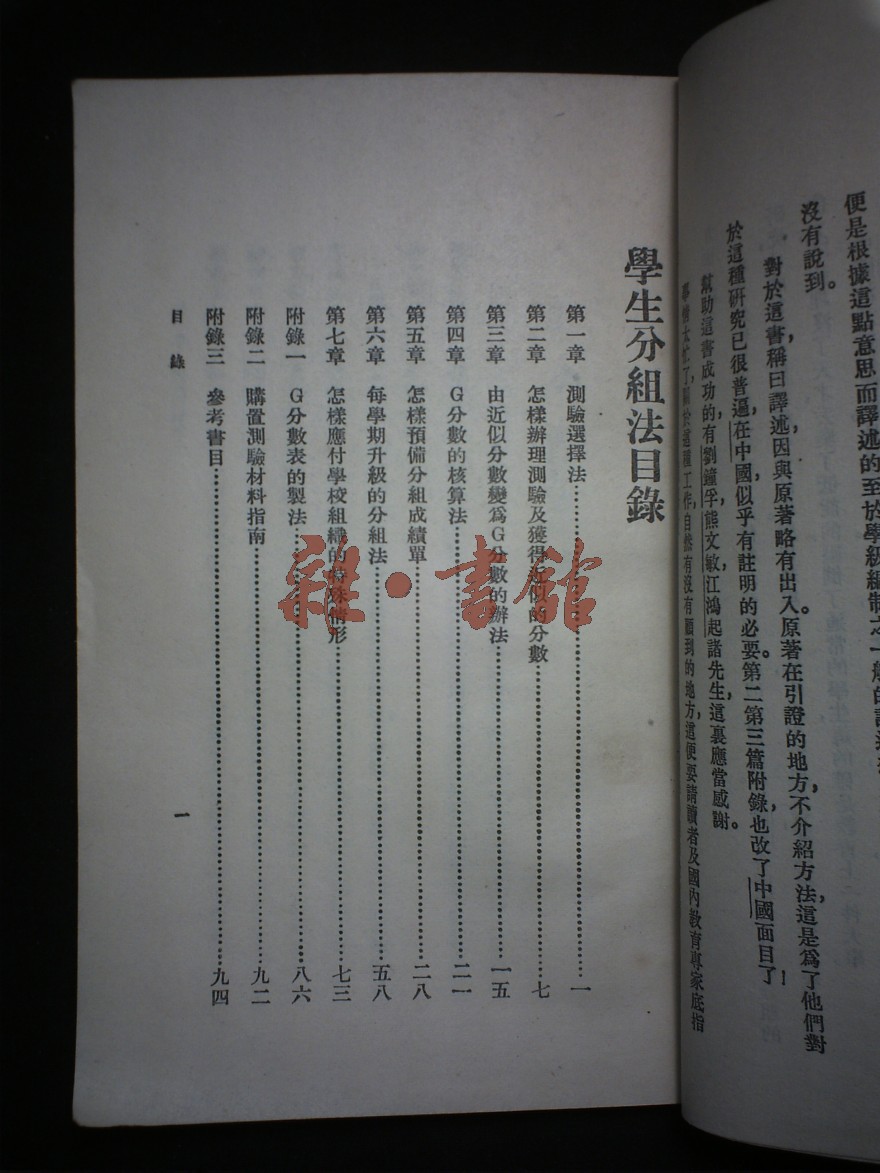 便是根據這點意思而譯述的至於學級編制之一般的
沒有說到。
對於這書稱曰譯述，因與原著略有出入。原著在引證的地方，不介紹方法，這是爲了他們對
於這種研究已很普遍，在中國似乎有註明的必要。第二第三篇附錄，也改了中國面目了！
幫助這書成功的，有劉鐘孚熊文敏江鴻起諸先生，這裏應當感謝。
事情太忙了，關於這種工作自然有沒有顧到的地方，這便要請讀者及國內教育專家底指
學生分組法目錄
第一章　測驗選擇法……一
第二章　怎樣辦理測驗及獲得近似的分數……七
第三章　由近似分數變爲G分數的辦法……一五
第四章　G分數的核算法……二一
第五章　怎樣預備分組成績單……二八
第六章　每學期升級的分組法……五八
第七章　怎樣應付學校組織的特殊情形……七三
附錄一　G分數表的製法……八六
附錄二　購置測驗材料指南……九二
附錄三　參考書目……九四
目錄
一
雜·書館